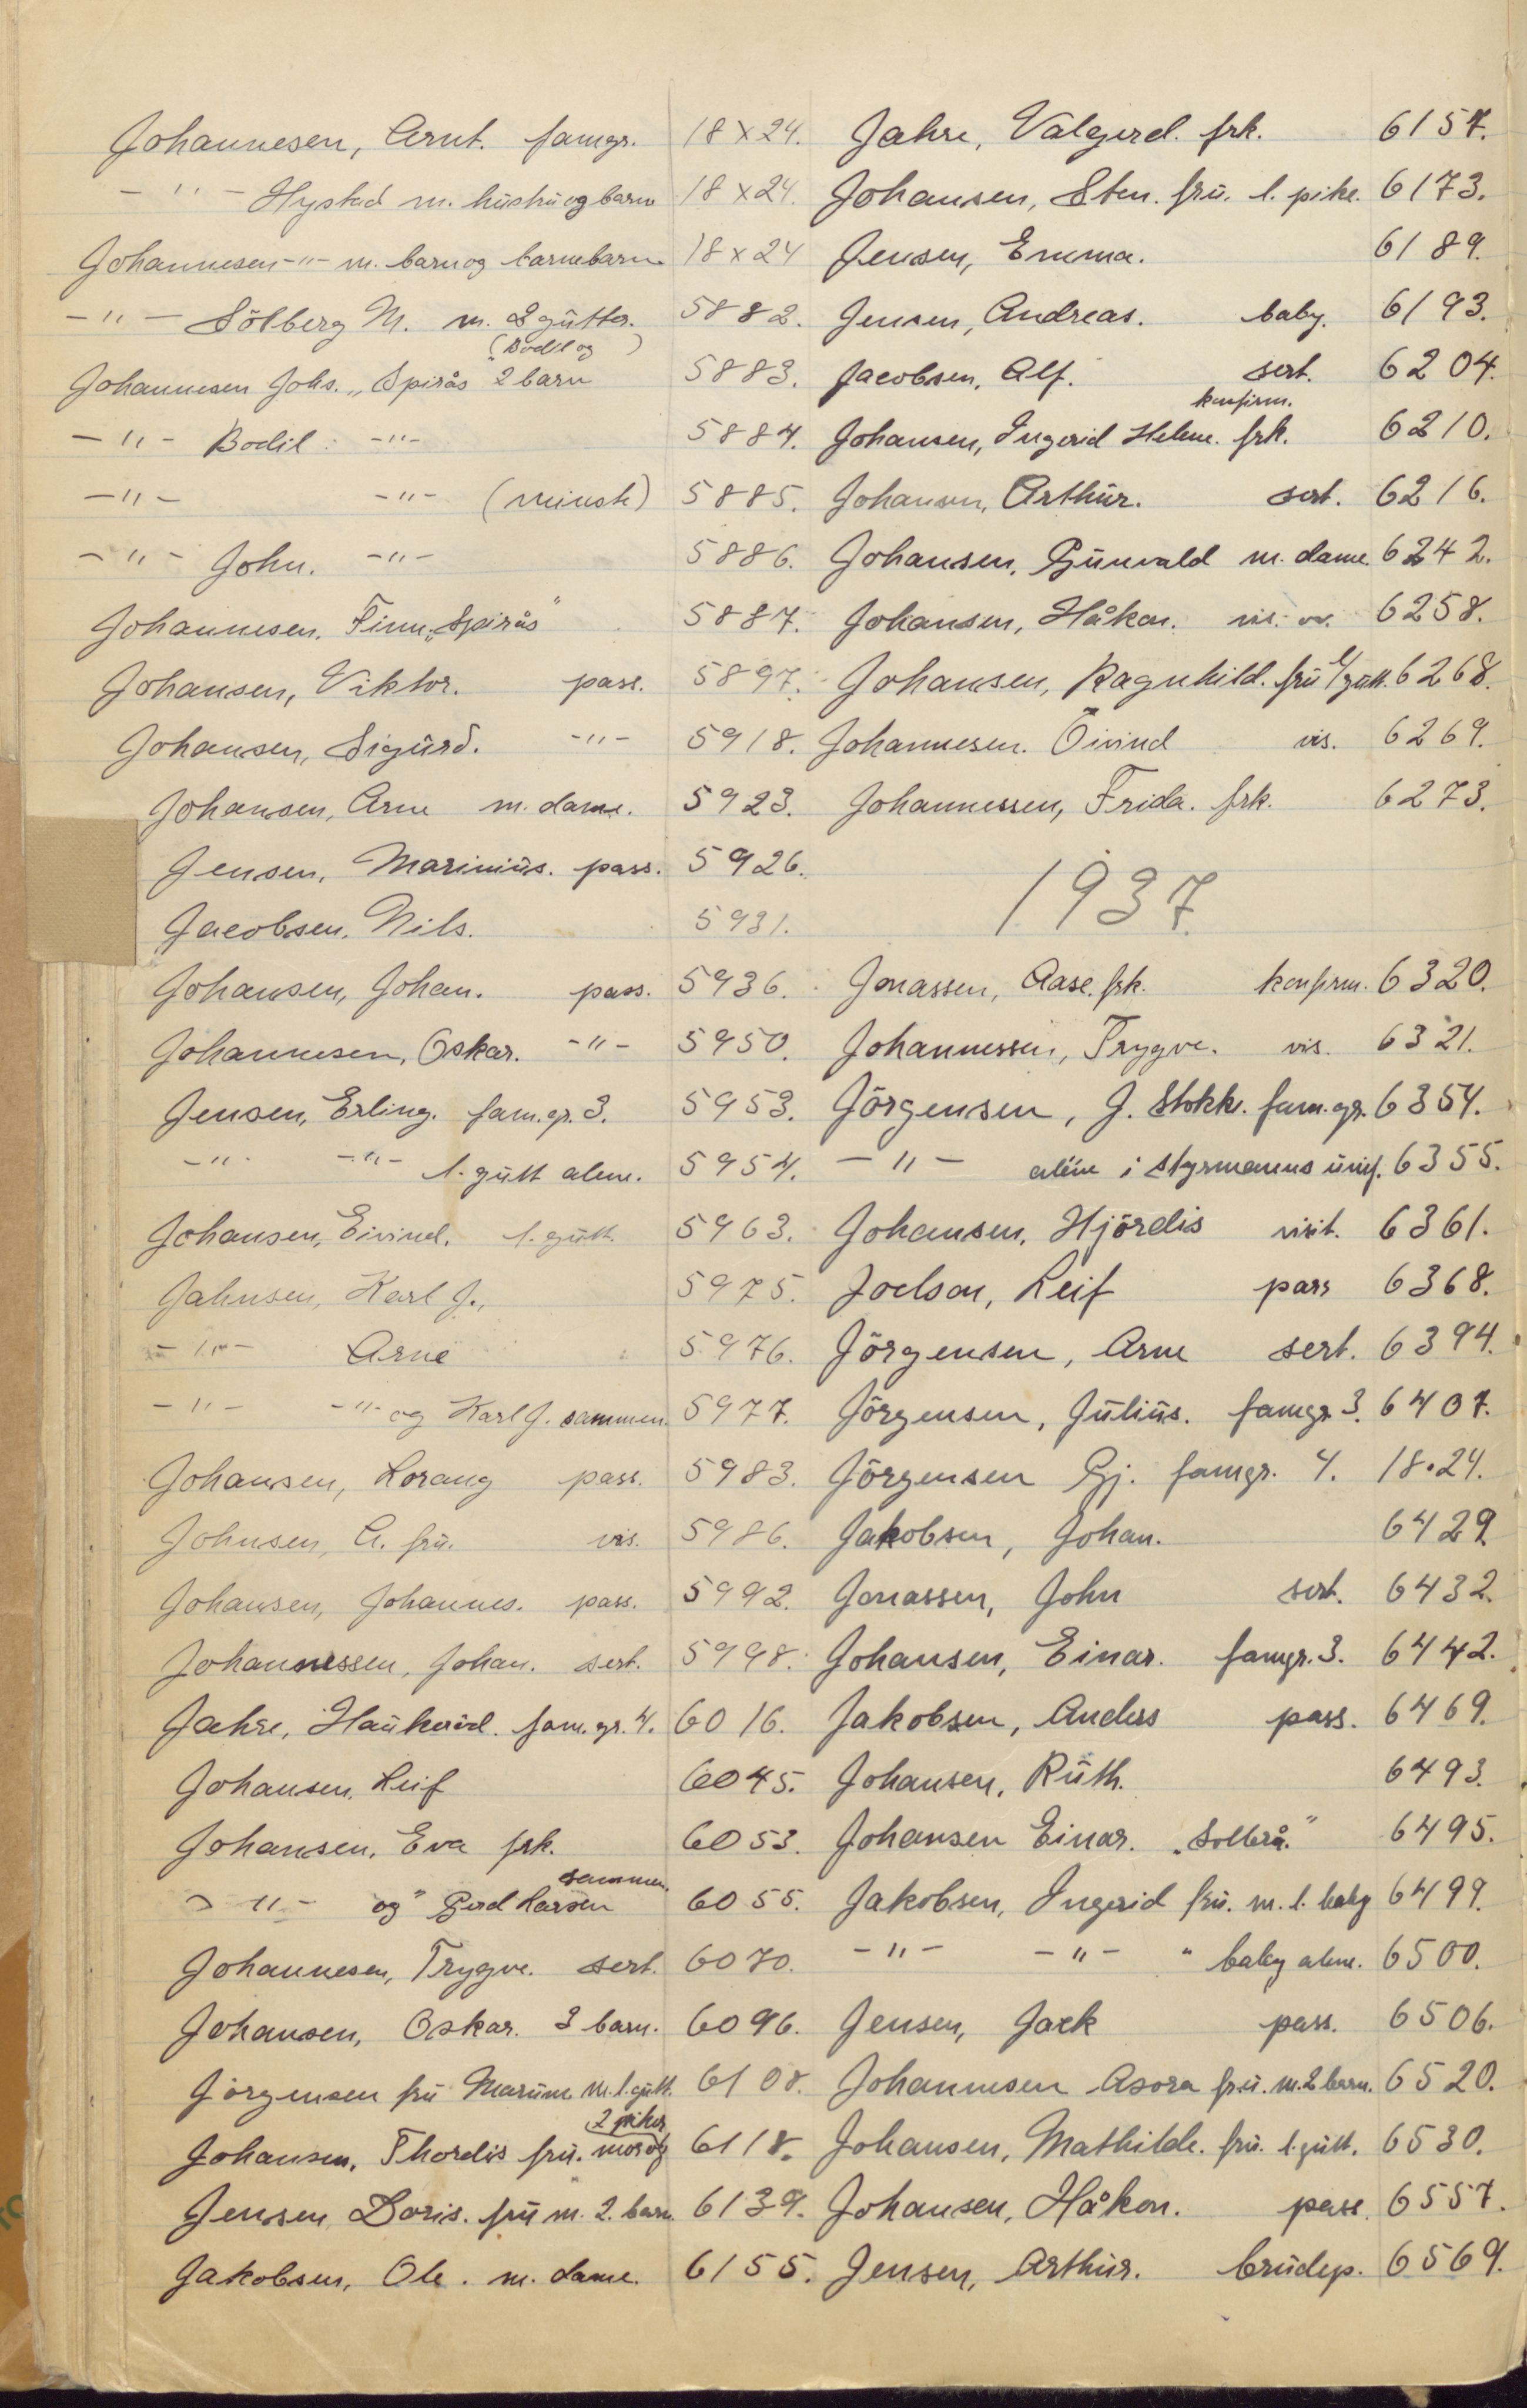 Johannesen, Arnt. famgr. 18 x 24.
- " - Hystad m. hustru og barn 18 x 24.
Johannesen - " - m. barn og barnebarn 18 x 24
- " - Sölberg M. m. 2 gutter. 5882.
(Bodil og )
Johannesen Johs. „Spirås" 2 barn 5883.
- " - Bodil: - " - 5884.
- " - - " - (minst) 5885.
- " - John. - " - 5886.
Johannesen. Finn „Spirås" 5887.
Johansen, Viktor. pass. 5897.
Johansen, Sigurd. - " - 5918.
Johansen, Arne m. dame. 5923.
Jensen, Marinius. pass. 5926.
Jacobsen, Nils. 5931.
Johansen, Johan. pass. 5936.
Johannesen, Oskar. - " - 5950.
Jensen, Erling. fam.gr. 3. 5953.
- " - - " - 1. gutt alene. 5954.
Johansen, Eivind. 1. gutt. 5963.
Jahnsen, Karl J., 5975.
- " - Arne 5976.
- " - - " - og Karl J. sammen. 5977.
Johansen, Lorang pass. 5983.
Johnsen, A. fru. vis. 5986.
Johansen, Johannes. pass. 5992.
Johannessen, Johan. sert. 5998.
Jahre, Haukerød. fam. gr. 4. 6016.
Johansen, Leif 6045.
Johansen, Eva frk. 6053.
sammen.
- " - og " Gerd Larsen 6055.
Johannesen, Trygve. sert. 6070.
Johansen, Oskar. 3 barn. 6096.
Jörgensen fru Marum m. 1. gutt. 6108.
2 piker
Johansen, Thordis fru. mor og 6118.
Jensen, Doris. fru m. 2. barn. 6139.
Jakobsen, Ole. m. dame. 6155.
Jahre, Valgerd. frk. 6157.
Johansen, Sten. fru. 1. pike. 6173.
Jensen, Emma. 6189.
Jensen, Andreas. baby. 6193.
Jacobsen, Alf. sert. 6204.
konfirm.
Johansen, Ingerid Helene. frk. 6210.
Johansen, Arthur. sert. 6216.
Johansen, Gunvald m. dame. 6242.
Johansen, Håkon. vis. 6258.
Johansen, Ragnhild. fru 1/gutt. 6268.
Johannesen. Öivind vis. 6269.
Johannessen, Frida. frk. 6273.
1937.
Jonassen, Aase. frk. konfirm. 6320.
Johannessen, Trygve. vis. 6321.
Jörgensen, J. Stokke. fam.gr. 6354.
- " - alene i styrmanns unif. 6355.
Johansen, Hjördis visit. 6361.
Joelson, Leif pass 6368.
Jörgensen, Arne sert. 6394.
Jörgensen, Julius. famgr 3. 6407.
Jörgensen Gj. famgr. 4. 18 • 24.
Jakobsen, Johan. 6429
Jonassen, John sert. 6432.
Johansen, Einar. famgr. 3. 6442.
Jakobsen, Anders pass. 6469.
Johansen, Ruth. 6493.
Johansen Einar. „Solbrå." 6495.
Jakobsen, Ingerid fru. m. 1. baby 6499.
- " - - " - " baby alene. 6500.
Jensen, Jack pass. 6506.
Johannesen Asora fru. m. 2 barn. 6520.
Johansen, Mathilde. fru. 1. gutt. 6530.
Johansen, Håkon. pass. 6557.
Jensen, Arthur. brudep. 6569.